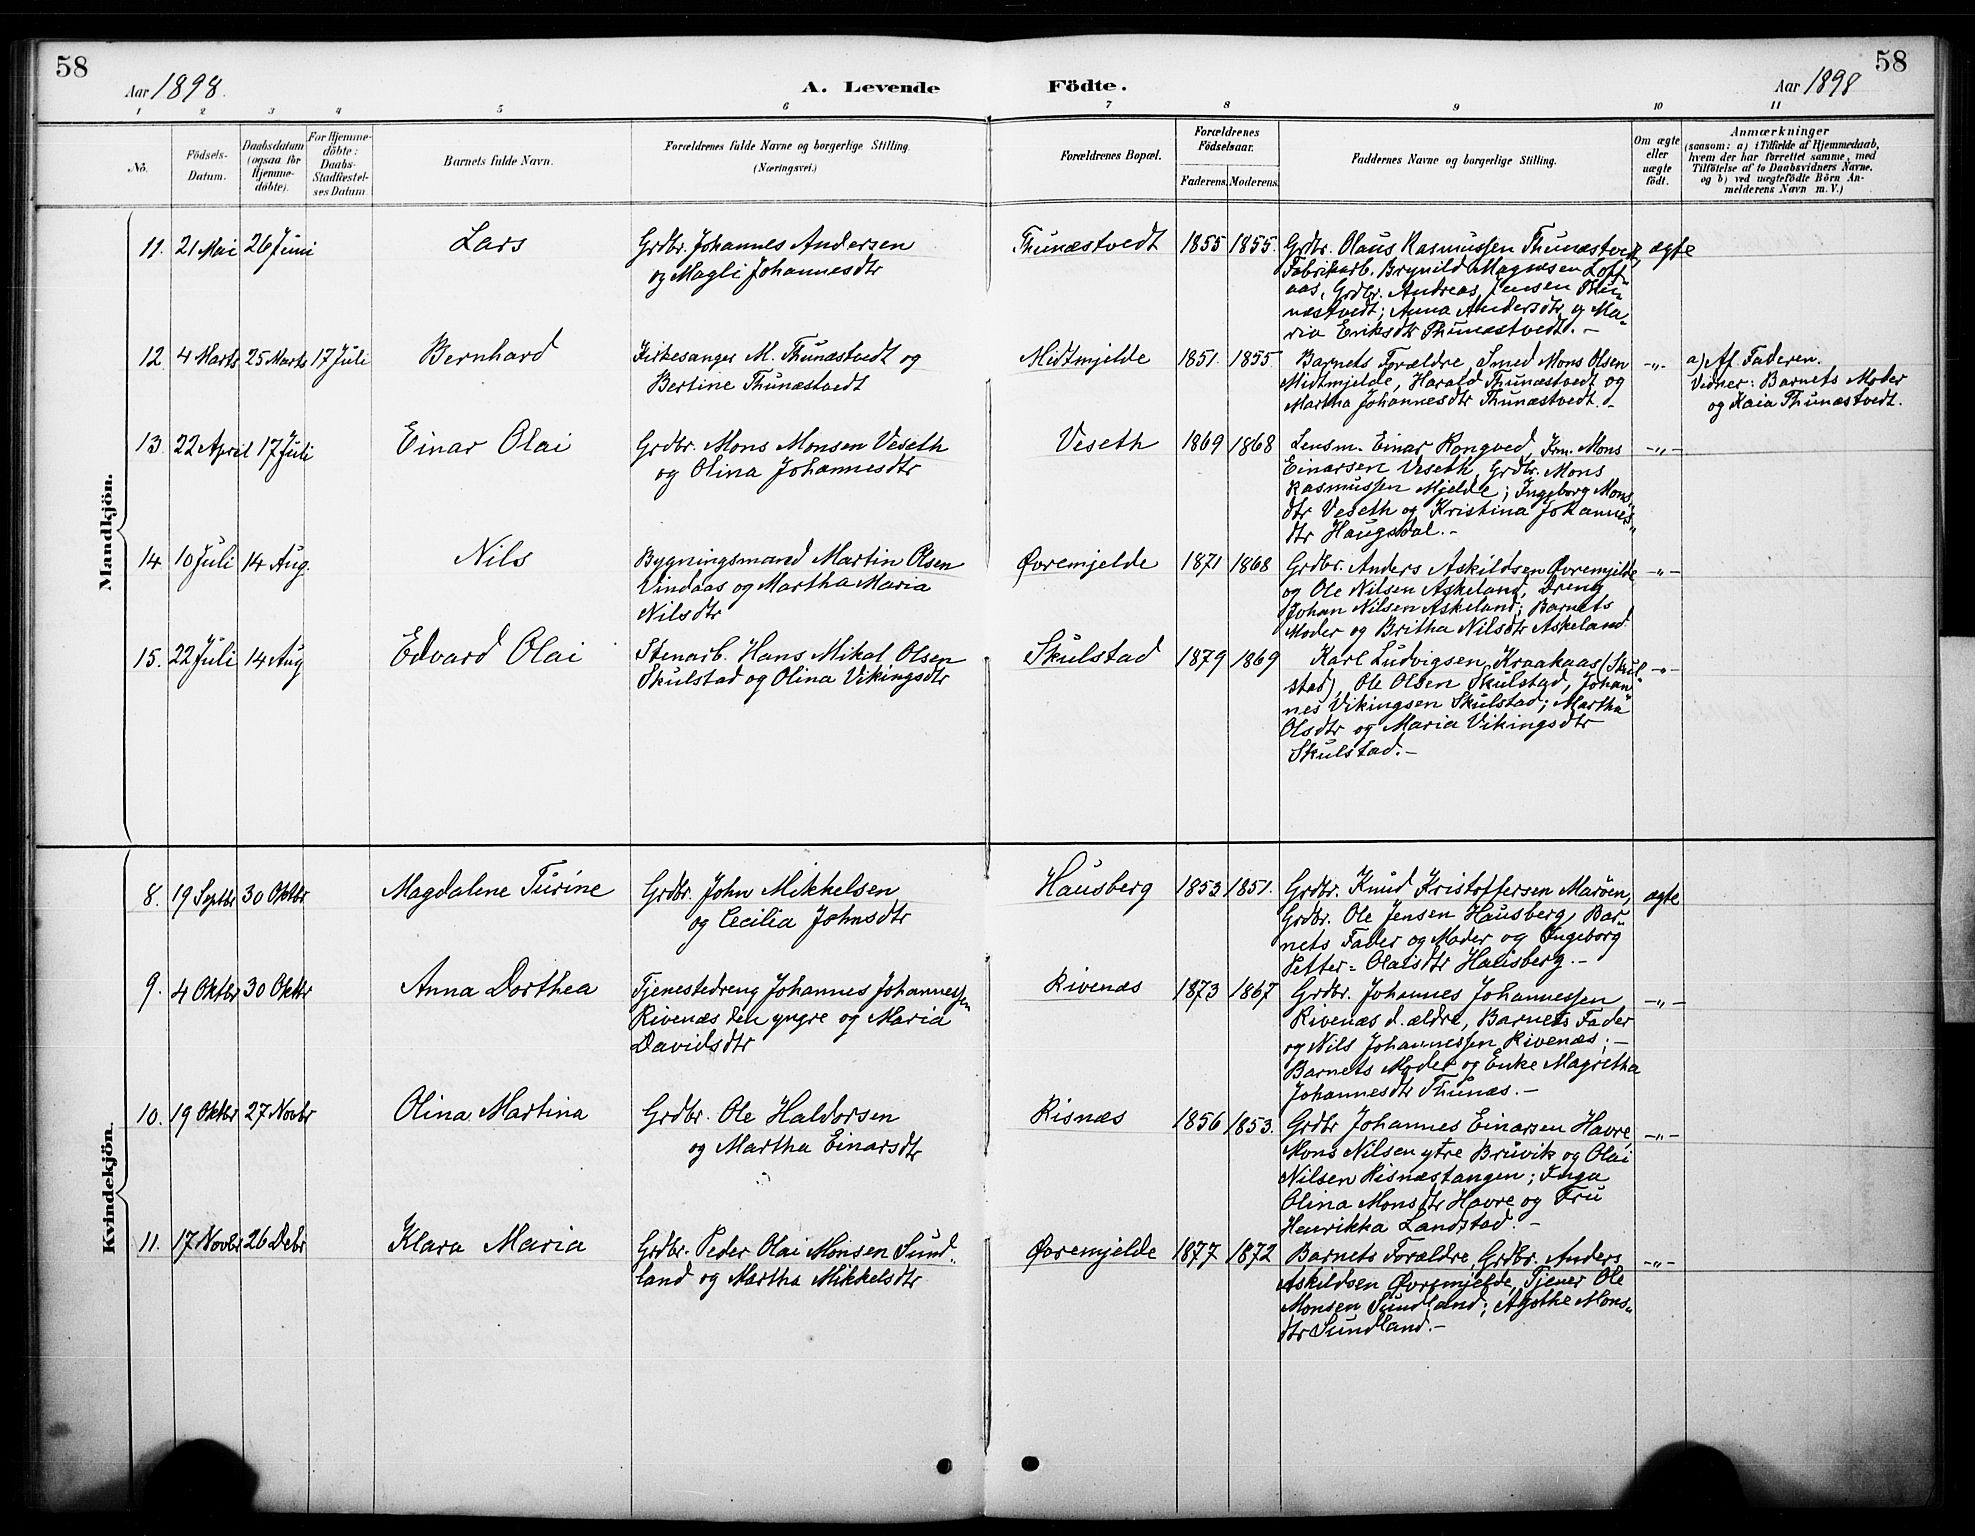 58
Aar 1898.
A. Levende Födte.
Aar 1898
58
1 2 3 4 5 6 7 8 9 10 11
No.
Födsels-
Datum.
Daabsdatum
(ogsaa for
Hjemme-
döbte).
For Hjemme-
döbte:
Daabs-
Stadfæstel-
ses Datum
Barnets fulde Navn.
Forældrenes fulde Navne og borgerlige Stilling.
(Næringsvei.)
Forældrenes Bopæl.
Forældrenes
Födselsaar.
Faderens. Moderens.
Faddernes Navne og borgerlige Stilling.
Om ægte
eller
uægte
födt.
Anmærkninger
(saasom: a) i Tilfælde af Hjemmedaab,
hvem der har forrettet samme, med
Tilföielse af to Daabsvidners Navne,
og b) ved uægtefödte Börn An-
melderens Navn m. V.)
Mandkjön.
11. 21 Mai 26 Juni
Lars
Grdbr. Johannes Andersen
og Magli Johannesdtr
Thunæstvedt 1855 1855.
Grdbr. Olaus Rasmussen Thunæstvedt,
Fabrikarb. Brynild Magnesen Loft-
aas, Grdbr. Andreas Jensen Thu-
næstvedt; Anna Andersdtr og Ma-
ria Eriksdtr Thunæstvedt. -
ægte
12. 4 Marts 25 Marts 17 Juli
Bernhard
Kirkesanger M. Thunæstvedt og
Bertine Thunæstvedt
Midtmjelde 1851. 1855
Barnets Forældre, Smed Mons Olsen
Midtmjelde, Harald Thunæstvedt og
Martha Johannesdtr Thunæstvedt. -
-"-
a) Af Faderen.
Vidner: Barnets Moder
og Kaia Thunæstvedt.
13. 22 April 17 Juli
Einar Olai
Grdbr. Mons Monsen Veseth
og Olina Johannesdtr
Veseth 1869 1868
Lensm. Einar Rongved, Frm. Mons
Einarsen Veseth, Grdbr. Mons
Rasmussen Mjelde; Ingeborg Mons-
dtr Veseth og Kristina Johannes-
dtr Haugsdal. -
-"-
14. 10 Juli 14 Aug.
Nils
Bygningsmand Martin Olsen
Vindaas og Martha Maria
Nilsdtr
Øvremjelde 1871 1868
Grdbr. Anders Askildsen Øvremjelde
og Ole Nilsen Askeland, Dreng
Johan Nilsen Askeland; Barnets
Moder og Britha Nilsdtr Askeland.
-"-
15. 22 Juli 14 Aug
Edvard Olai
Stenarb. Hans Mikal Olsen
Skulstad og Olina Vikingsdtr
Skulstad 1879 1869
Karl Ludvigsen Kraakaas (Skul-
stad), Ole Olsen Skulstad, Johan-
nes Vikingsen Skulstad; Martha
Olsdtr og Maria Vikingsdtr
Skulstad. -
-"-
Kvindekjön.
8. 19 Septbr 30 Oktbr
Magdalene Turine
Grdbr. John Mikkelsen
og Cecilia Johnsdtr
Hausberg 1853 1851.
Grdbr. Knud Kristoffersen Marøen,
Grdbr. Ole Jensen Hausberg, Bar-
nets Fader og Moder og Ingeborg
Petter-Olaisdtr Hausberg. -
ægte
9. 4 Oktbr 30 Oktbr
Anna Dorthea
Tjenestedreng Johannes Johannessen
Rivenæs den yngre og Maria
Davidsdtr
Rivenæs 1873 1867
Grdbr. Johannes Johannessen
Rivenæs d. ældre, Barnets Fader
og Nils Johannessen Rivenæs; -
Barnets Moder og Enke Magretha
Johannesdtr Thunæs. -
-"-
10. 19 Oktbr 27 Novbr
Olina Martina
Grdbr. Ole Haldorsen
og Martha Einarsdtr
Risnæs 1856 1853.
Grdbr Johannes Einarsen Havre,
Mons Nilsen ytre Bruvik og Olai
Nilsen Risnæstangen; Inga
Olina Monsdtr Havre og Fru
Henrikka Landstad. -
-"-
11. 17 Novbr 26 Debr
Klara Maria
Grdbr. Peder Olai Monsen Sund-
land og Martha Mikkelsdtr
Øvremjelde 1877 1872
Barnets Forældre, Grdbr. Anders
Askildsen Øvremjelde, Tjener Ole
Monsen Sundland; Agothe Mons-
dtr Sundland. -
-"-